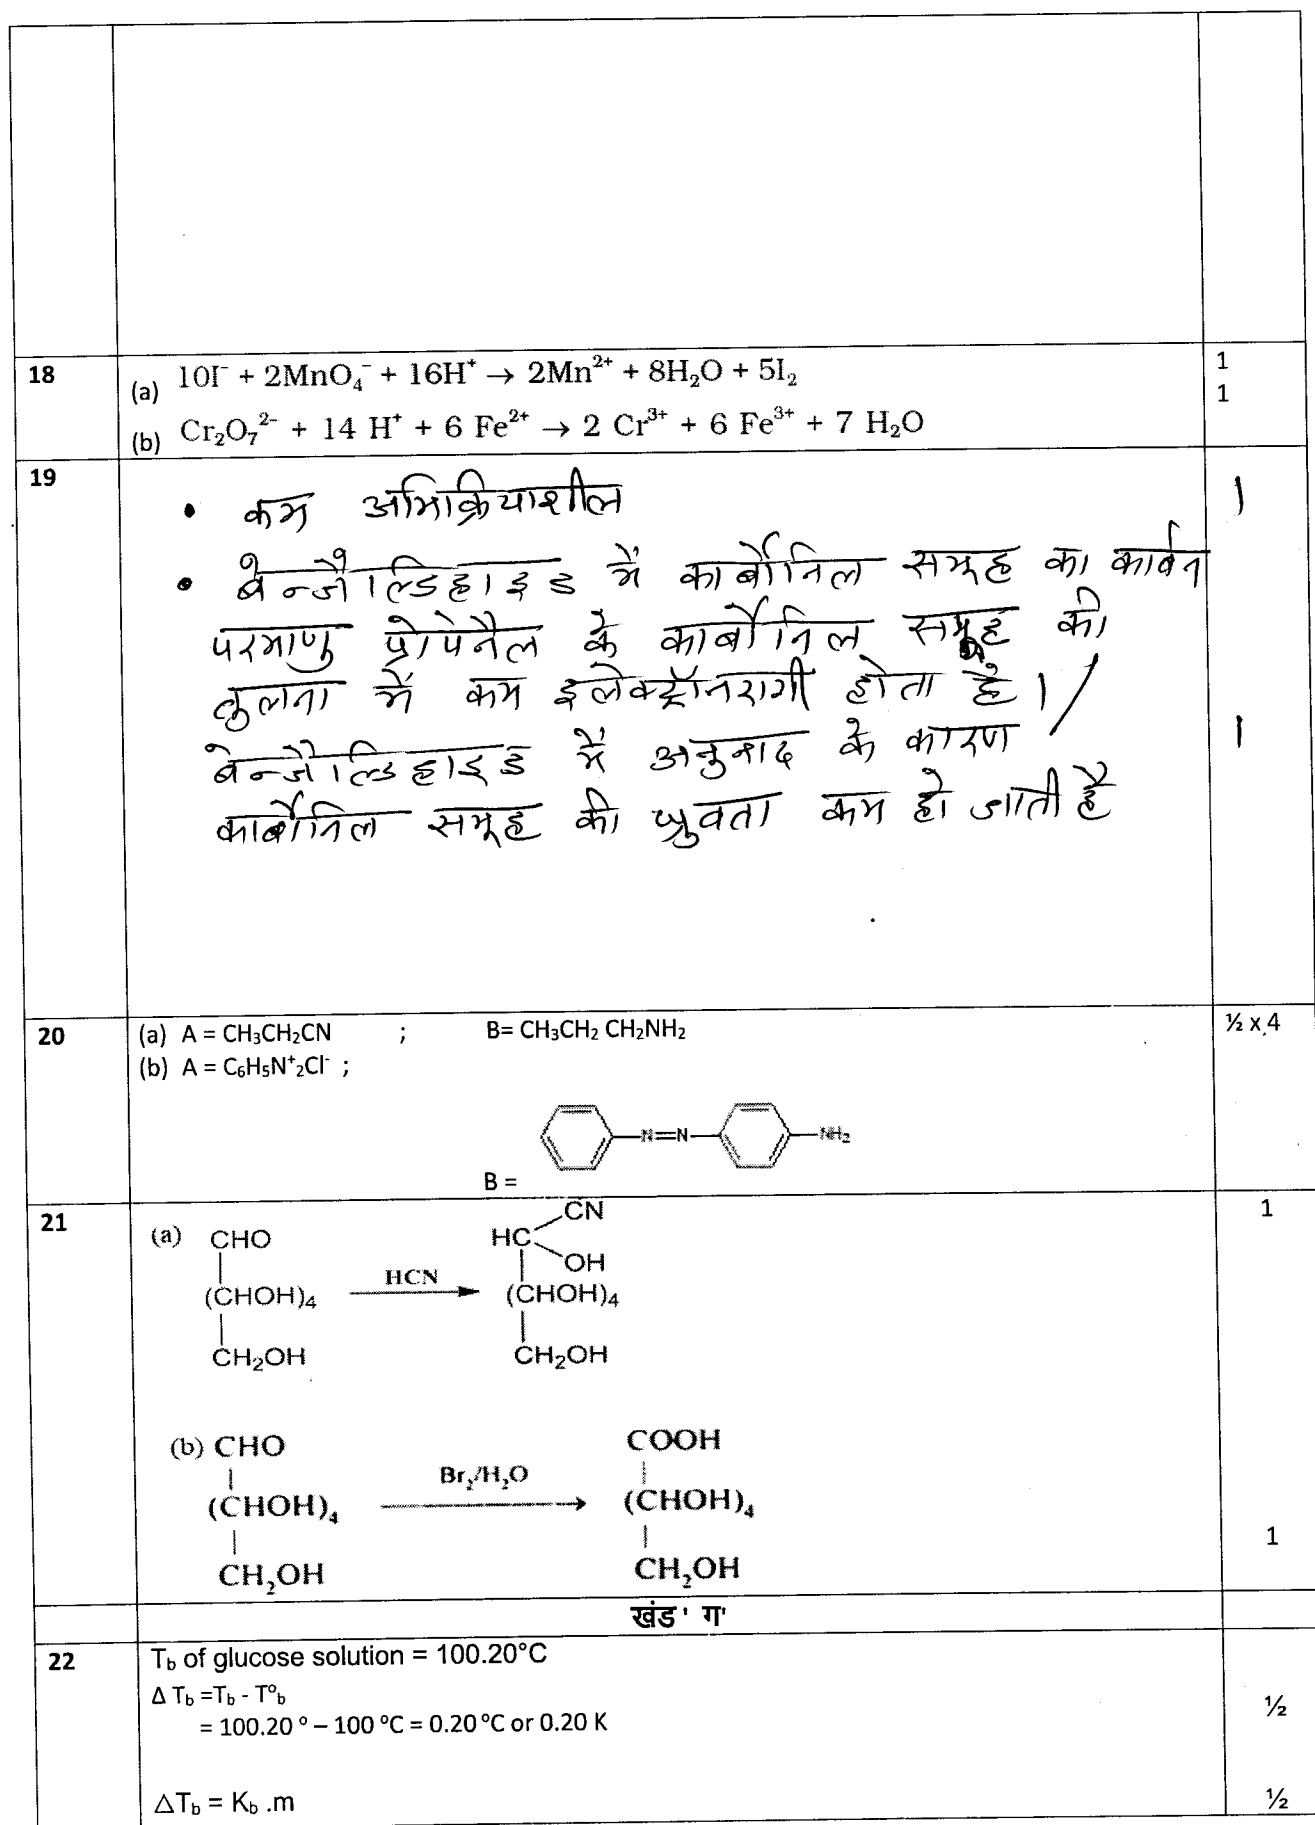 18
(a) 10I⁻ + 2MnO₄⁻ + 16H⁺ → 2Mn²⁺ + 8H₂O + 5I₂ 1
1
(b) Cr₂O₇²⁻ + 14 H⁺ + 6 Fe²⁺ → 2 Cr³⁺ + 6 Fe³⁺ + 7 H₂O
19
• कम अभिक्रियाशील 1
• बेन्जैल्डिहाइड में कार्बोनिल समूह का कार्बन
परमाणु प्रोपेनैल के कार्बोनिल समूह की
तुलना में कम इलेक्ट्रॉनरागी होता है । /
बेन्जैल्डिहाइड में अनुनाद के कारण 1
कार्बोनिल समूह की ध्रुवता कम हो जाती है
20 (a) A = CH₃CH₂CN ; B= CH₃CH₂ CH₂NH₂ ½ x 4
(b) A = C₆H₅N⁺₂Cl⁻ ;
N=N NH₂
B =
21 1
CN
(a) CHO HC
OH
HCN
(CHOH)₄ (CHOH)₄
CH₂OH CH₂OH
(b) CHO COOH
Br₂/H₂O
(CHOH)₄ (CHOH)₄
1
CH₂OH CH₂OH
खंड ' ग'
22 T_b of glucose solution = 100.20°C
Δ T_b =T_b - T°_b ½
= 100.20 ° – 100 °C = 0.20 °C or 0.20 K
△T_b = K_b .m ½